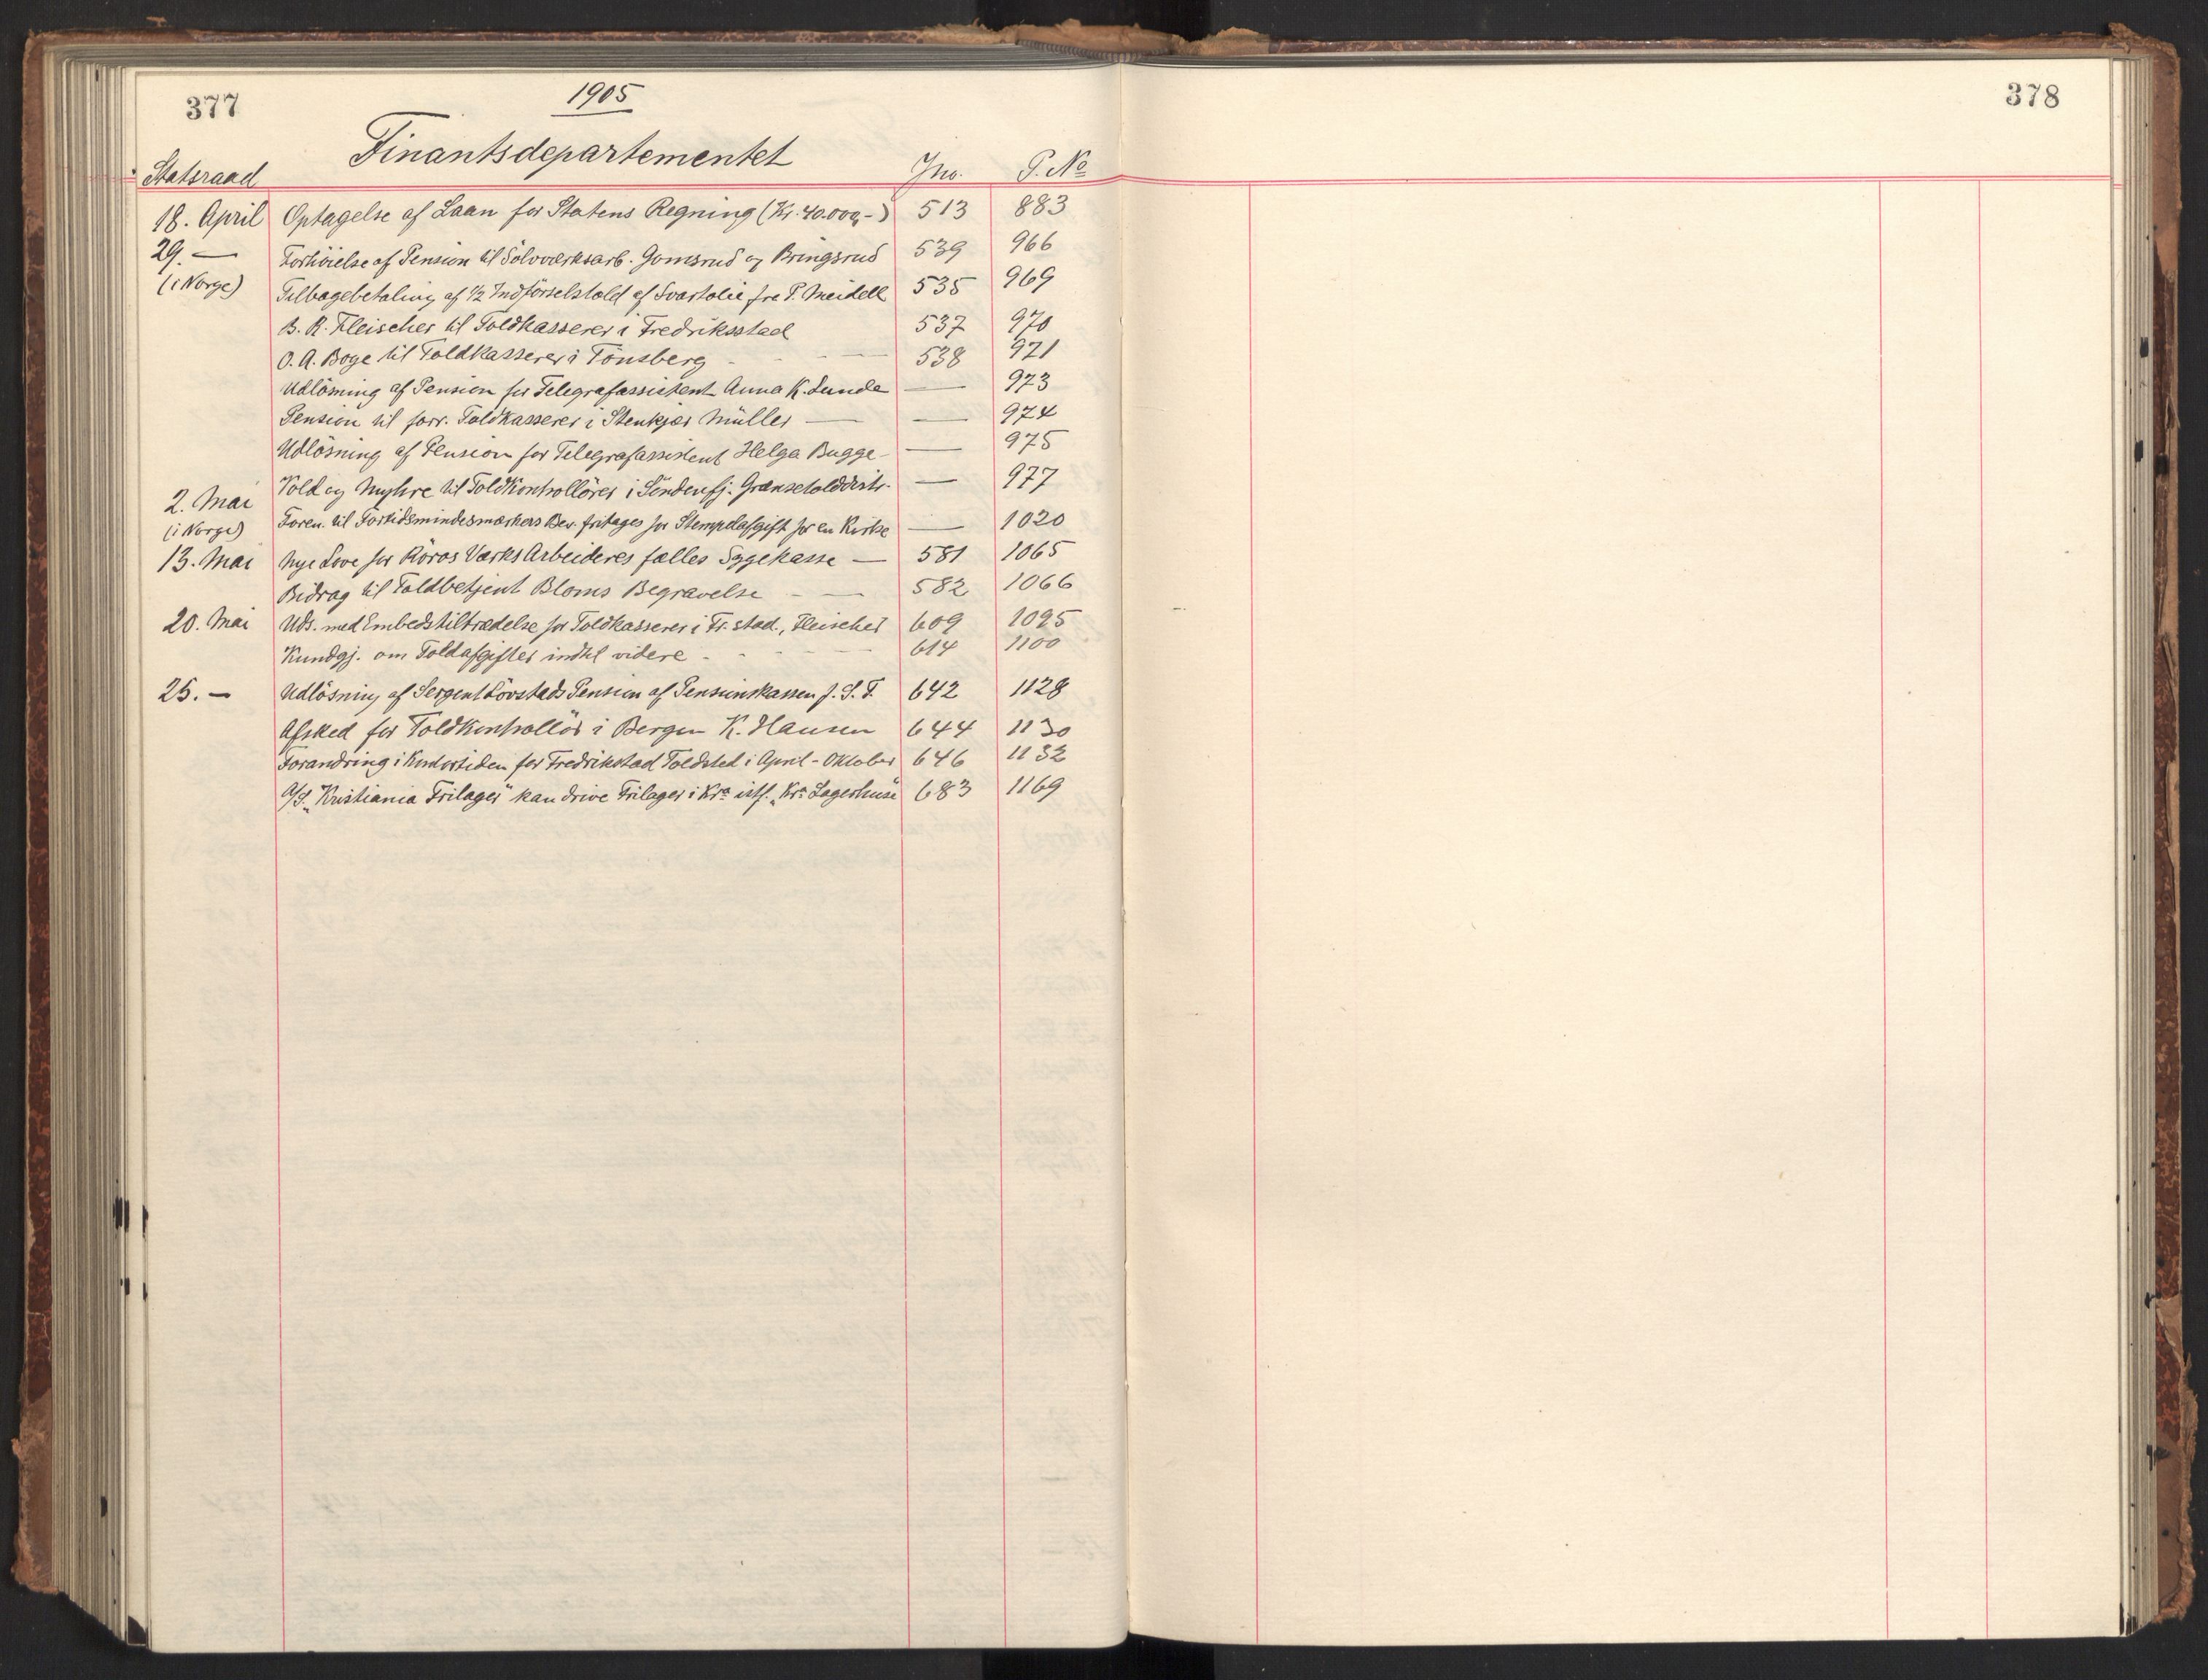 377
1905
378
Finantsdepartementet
Statsraad Jno. P. No
18. April Optagelse af Laan for Statens Regning (Kr. 40.000,-) 513 883
29. — Forhöielse af Pension til Sölvværksarb. Gomsrud og Bringsrud 539 966
(i Norge) Tilbagebetaling af 1/2 Indförselstold af Svartolie fra P. Meidell 535 969
B. R. Fleischer til Toldkasserer i Fredriksstad 537 970
O. A. Boge til Toldkasserer i Tönsberg — 538 971
Udlösning af Pension for Telegrafassistent Anna K. Lunde — 973
Pension til forr. Toldkasserer i Stenkjær Müller — — 974
Udlösning af Pension for Telegrafassistent Helga Bugge — 975
Vold og Myhre til Toldkontrollörer i Söndenfj. Grænsetolddistr. — 977
2. Mai
(i Norge) Foren. til Fortidsmindesmærkers Bev. fritages for Stempelafgift for en Kirke — 1020
13. Mai Nye Love for Röros Værks Arbeideres fælles Sygekasse — 581 1065
Bidrag til Toldbetjent Bloms Begravelse — — 582 1066
20. Mai Uds. med Embedstiltrædelse for Toldkasserer i Fr.stad, Fleischer 609 1095
Kundgj. om Toldafgifter indtil videre - - - — 614 1100
25. — Udlösning af Sergent Lövstads Pension af Pensionskassen f. S. T. 642 1128
Afsked for Toldkontrollör i Bergen K. Hansen 644 1130
Forandring i Kontortiden for Fredrikstad Toldsted i April - Oktober 646 1132
A/S. „Kristiania Frilager" kan drive Frilager i Kra istf. „Kra Lagerhuse 683 1169